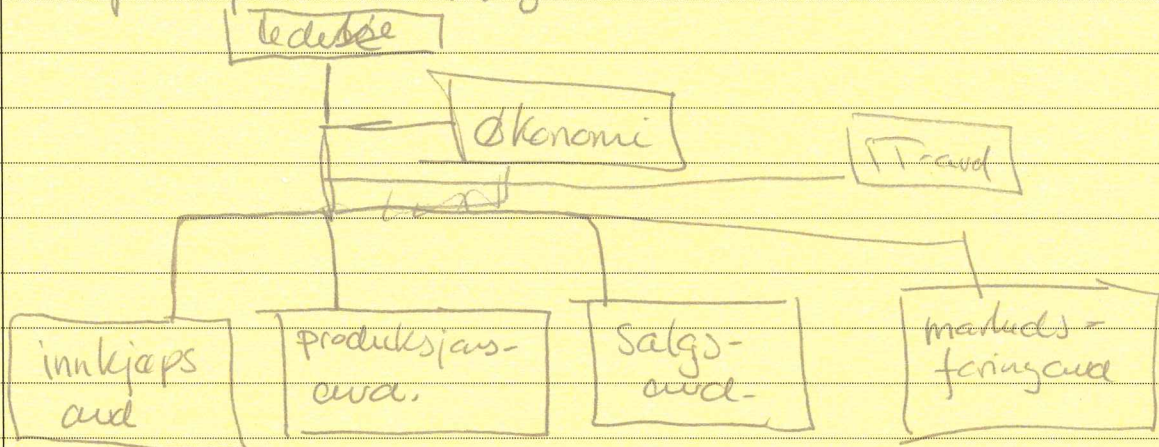 Økonomi
IT-avd
innkjøps
avd
produksjons-
avd.
Salgs-
avd-
markeds-
føringavd